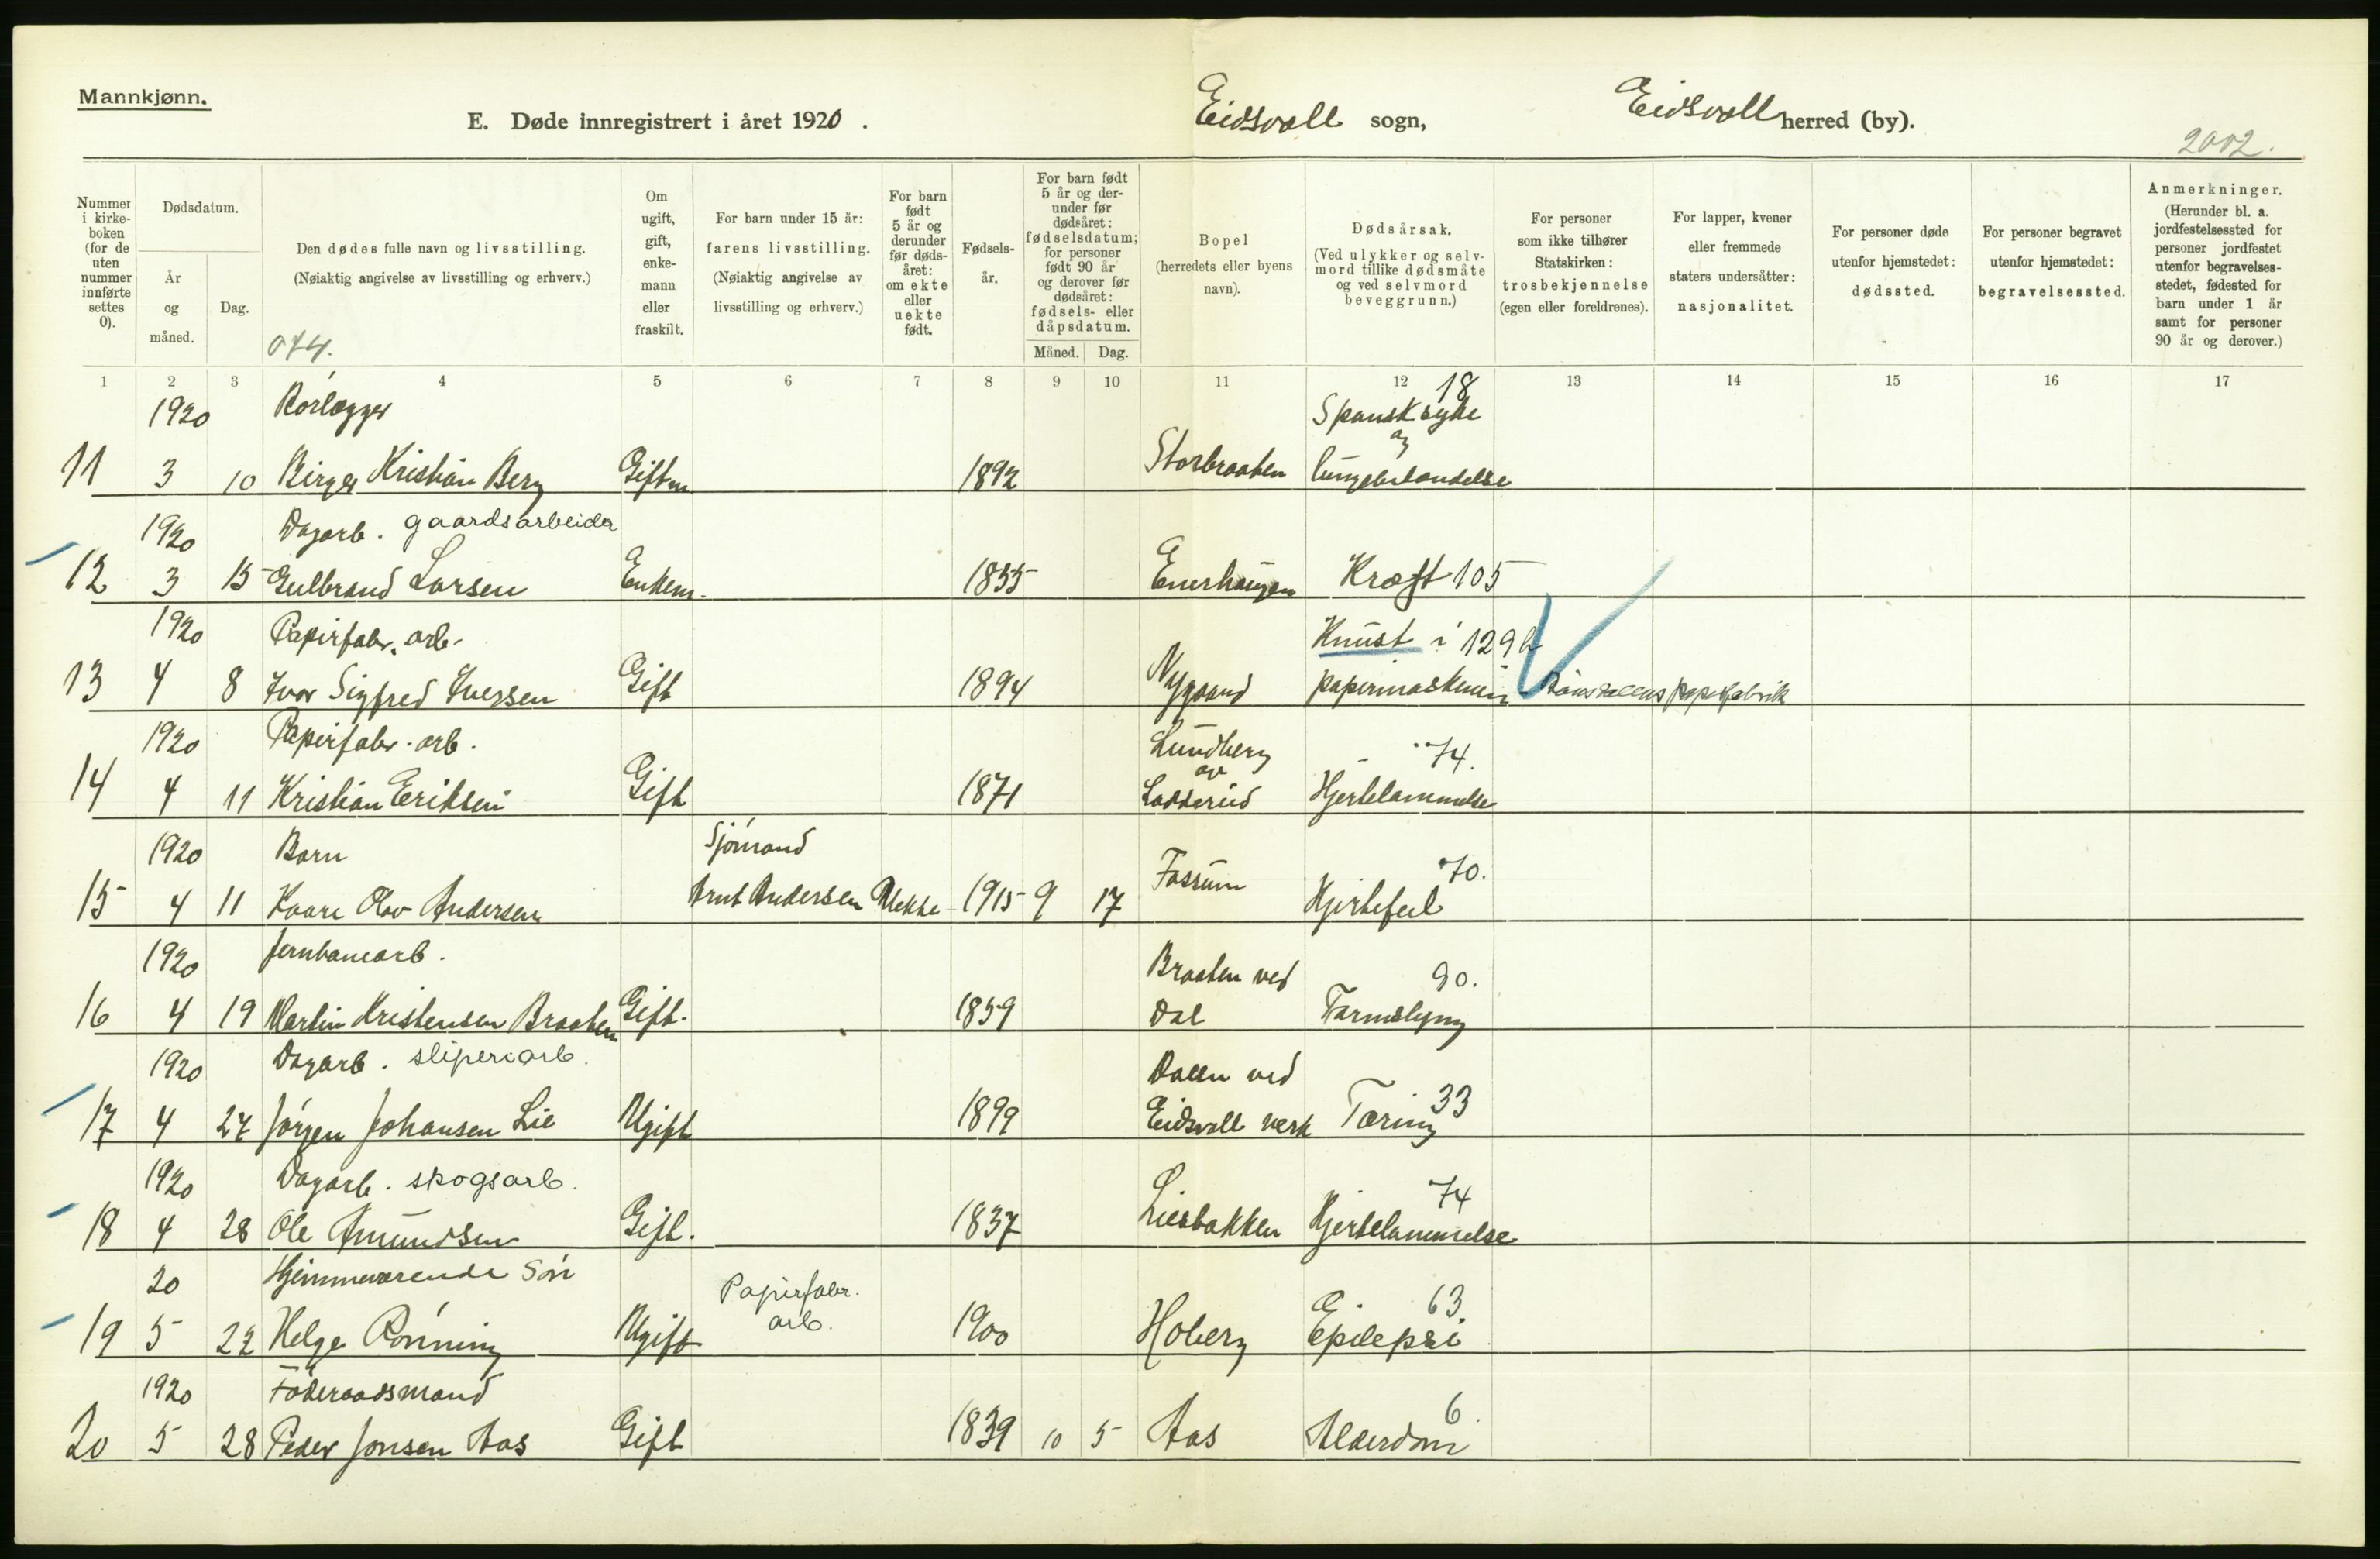 Mannkjønn.
E. Døde innregistrert i året 1920.
Eidsvoll sogn,
Eidsvoll herred (by).
2002.
Nummer i kirkeboken (for de uten nummer innførte settes 0).
Dødsdatum.
År og måned.
Dag.
Den dødes fulle navn og livsstilling.
(Nøiaktig angivelse av livsstilling og erhverv.)
074.
Om ugift, gift, enkemann eller fraskilt.
For barn under 15 år: farens livsstilling.
(Nøiaktig angivelse av livsstilling og erhverv.)
For barn født 5 år og derunder før dødsåret: om ekte eller uekte født.
Fødselsår.
For barn født 5 år og derunder før dødsåret: fødselsdatum; for personer født 90 år og derover før dødsåret: fødsels- eller dåpsdatum.
Måned. Dag.
Bopel
(herredets eller byens navn).
Dødsårsak.
(Ved ulykker og selvmord tillike dødsmåte og ved selvmord beveggrunn.)
For personer som ikke tilhører Statskirken: trosbekjennelse
(egen eller foreldrenes).
For lapper, kvener eller fremmede staters undersåtter: nasjonalitet.
For personer døde utenfor hjemstedet: dødssted.
For personer begravet utenfor hjemstedet: begravelsessted.
Anmerkninger.
(Herunder bl. a. jordfestelsessted for personer jordfestet utenfor begravelsesstedet, fødested for barn under 1 år samt for personer 90 år og derover.)
1 2 3 4 5 6 7 8 9 10 11 12 13 14 15 16 17
1920 Rørlægger Spansksyke 18
og
11 3 10 Birger Kristian Berg Giftm 1892 Storbraaten lungebetændelse
1920 Dagarb. gaardsarbeider
12 3 15 Gulbrand Larsen Enkem. 1855 Enerhaugen Kræft 105
1920 Papirfabr. arb. Knust i 129b
13 4 8 Ivar Sigfred Iversen Gift 1894 Nygaard papirmaskinen papirfabrik
1920 Papirfabr. arb. Lundberg 74.
av
14 4 11 Kristian Eriksen Gift 1871 Ladderud Hjertelammelse
1920 Barn Sjømand 70.
15 4 11 Kaare Olav Andersen Arnt Andersen Uekte 1915 9 17 Fossum Hjertefeil
1920 Jernbanearb. Braaten ved 90.
16 4 19 Martin Kristensen Braaten Gift. 1859 Dal Tarmslyng
1920 Dagarb. sliperiarb. Dalen ved 33
17 4 27 Jørgen Johansen Lie Ugift 1899 Eidsvoll verk Tæring
1920 Dagarb. skogsarb. 74
18 4 28 Ole Amundsen Gift. 1837 Liesbakken Hjertelammelse
20 Hjemmeværende søn Papirfabr. arb. 63
19 5 22 Helge Rønning Ugift 1900 Hoberg Epilepsi
1920 Føderaadsmand 6.
20 5 28 Peder Jonsen Aas Gift 1839 10 5 Aas Alderdom